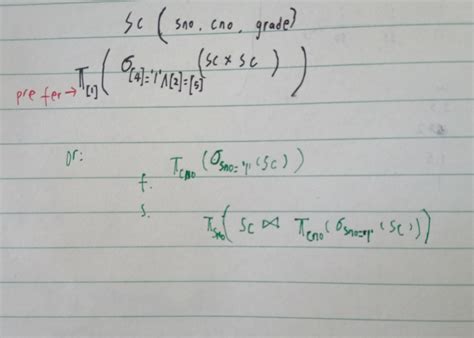 SC ( sno, cno, grade)
prefer → π[1] ( σ[4]='1'∧[2]=[5] (SC × SC ) )
or:
f. πcno (σsno='1' (SC))
s.
πsno( SC ⋈ πcno (σsno='1' (SC)))